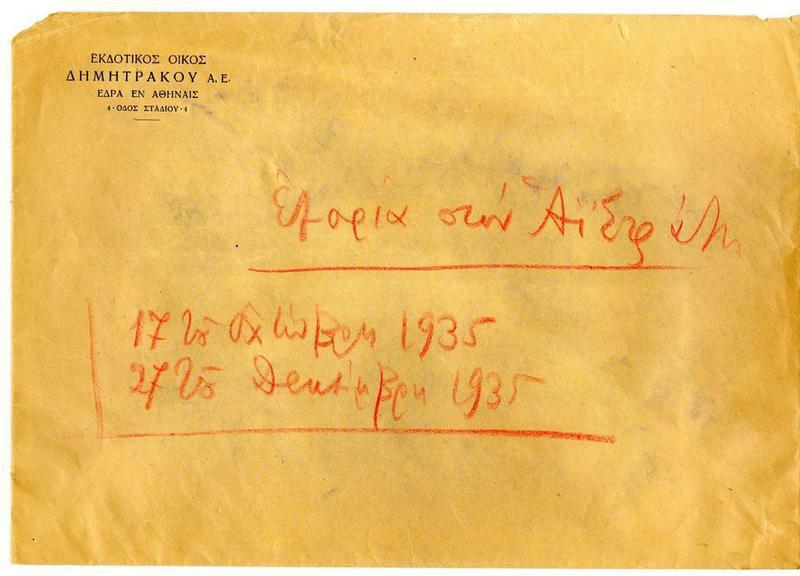 ΕΚΔΟΤΙΚΟΣ ΟΙΚΟΣ
ΔΗΜΗΤΡΑΚΟΥ Α. Ε.
ΕΔΡΑ ΕΝ ΑΘΗΝΑΙΣ
4 · ΟΔΟΣ ΣΤΑΔΙΟΥ · 4
Ἐξορία στὸν Ἁϊ Στράτη
17 τοῦ Ὀχτώβρη 1935
27 τοῦ Δεκέμβρη 1935